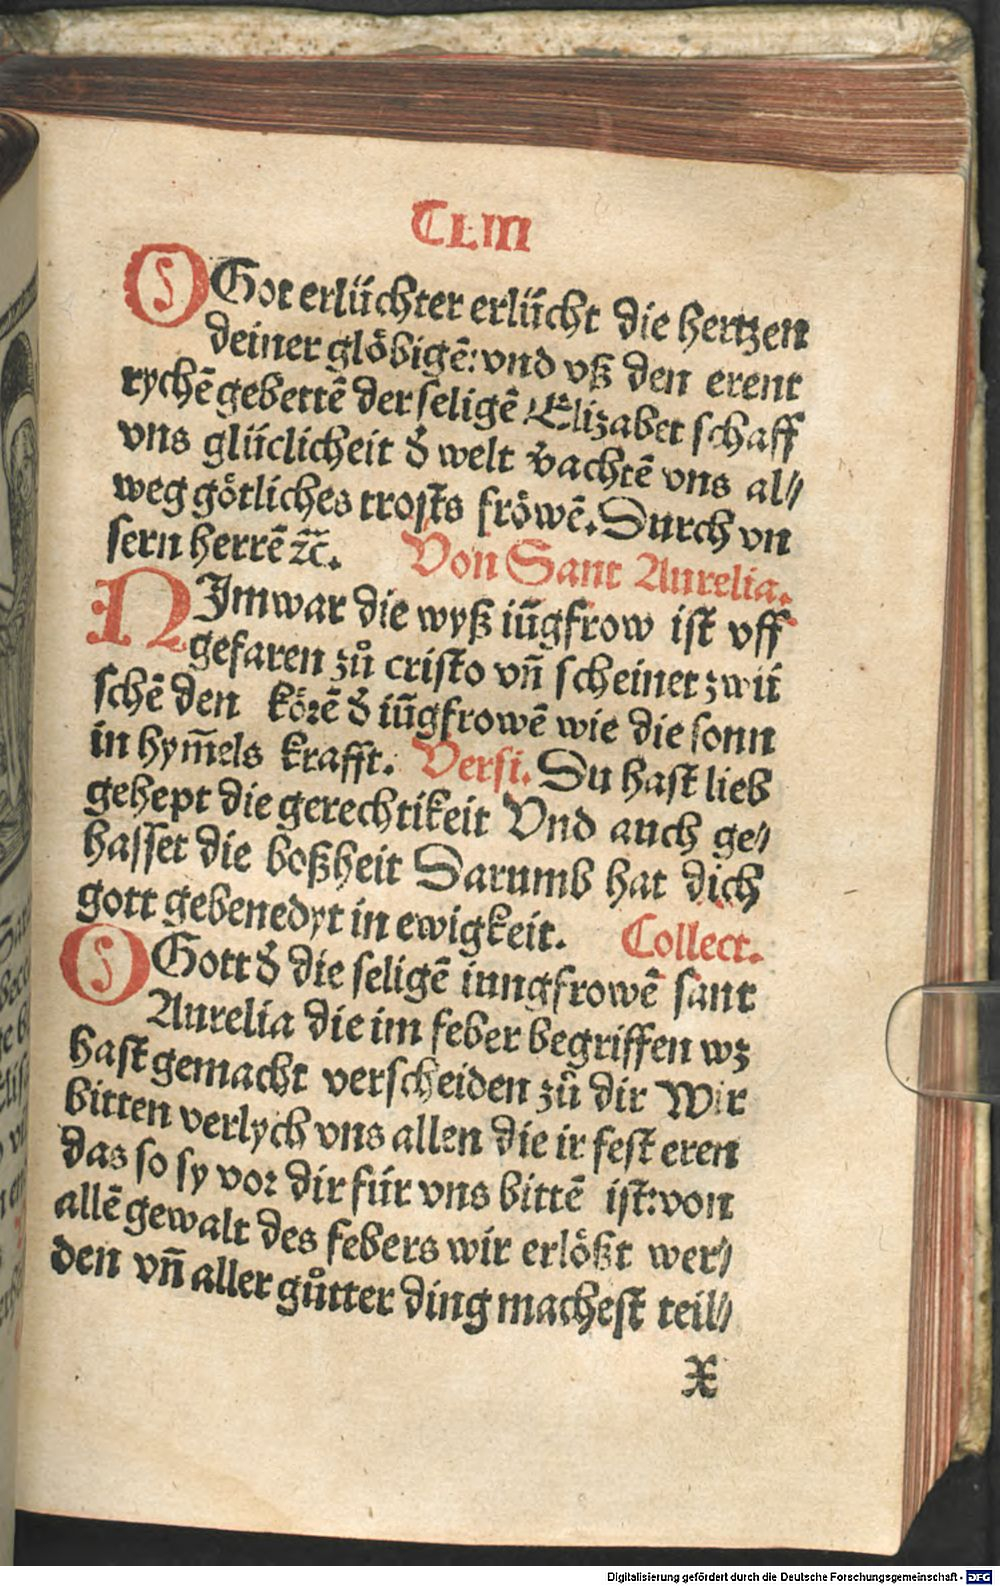 CLIII
O Got erlüchter erlücht die hertzen
deiner glöbigē: vnd vß den erent
rychē gebettē der seligē Elizabet schaff
vns glüclicheit d̕ welt v̕achtē vns al⸗
weg götliches trosts fröwē. Durch vn
sern herrē ⁊c̄. Von Sant Aurelia.
NImwar die wyß iūgfrow ist vff
gefaren zů cristo vn̄ scheinet zwü
schē den körē d̕ iūgfrowē wie die sonn
in hym̄els krafft. Versi. Du hast lieb
gehept die gerechtikeit Vnd auch ge⸗
hasset die boßheit Darumb hat dich
gott gebenedyt in ewigkeit. Collect.
O Gott d̕ die seligē iungfrowē sant
Aurelia die im feber begriffen wz
hast gemacht verscheiden zů dir Wir
bitten verlych vns allen die ir fest eren
das so sy vor dir für vns bittē ist: von
allē gewalt des febers wir erlößt wer⸗
den vn̄ aller gůtter ding machest teil⸗
X
Digitalisierung gefördert durch die Deutsche Forschungsgemeinschaft - DFG